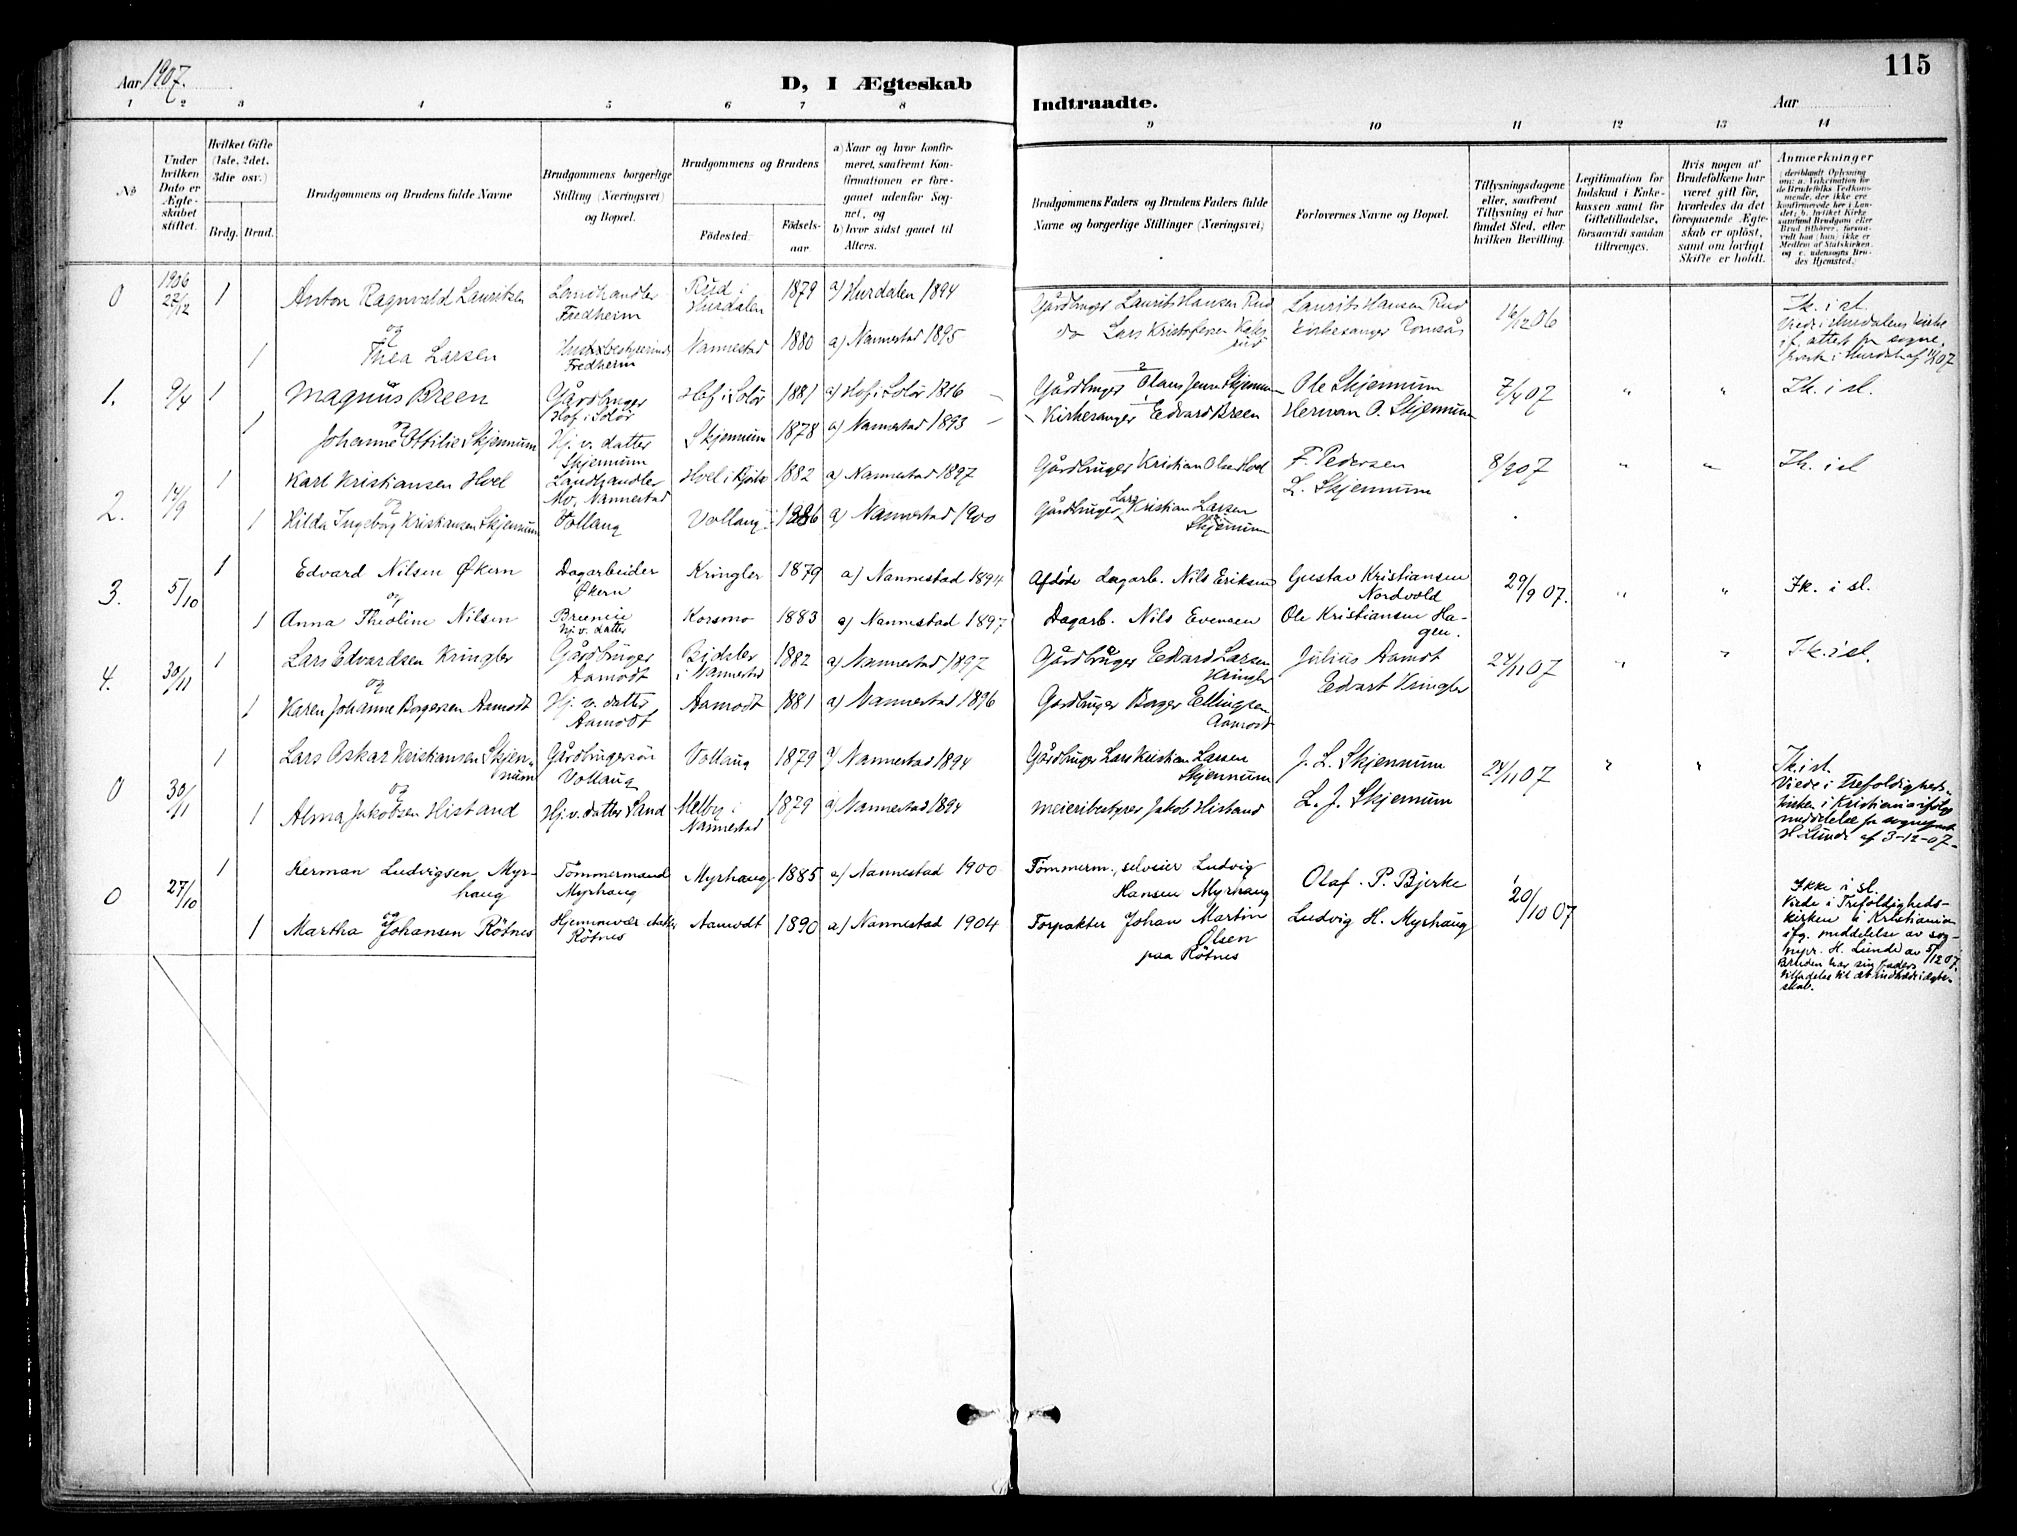 115
Aar 1907.
D, I Ægteskab
Indtraadte.
Aar
1 2 3 4 5 6 7 8
9 10 11 12 13 14
No
Under hvilken Dato er Ægteskabet stiftet.
Hvilket Gifte (1ste, 2det, 3die osv.)
Brdg. Brud.
Brudgommens og Brudens fulde Navne
Brudgommens borgerlige Stilling (Næringsvei) og Bopæl.
Brudgommens og Brudens
Fødested.
Fødselsaar
a) Naar og hvor konfirmeret, saafremt Konfirmationen er foregaaet udenfor Sognet, og
b) hvor sidst gaaet til Alters.
Brudgommens Faders og Brudens Faders fulde Navne og borgerlige Stillinger (Næringsvei)
Forlovernes Navne og Bopæl.
Tillysningsdagene eller, saafremt Tillysning ei har fundet Sted, efter hvilken Bevilling.
Legitimation for Indskud i Enkekassen samt for Giftetilladelse, forsaavidt saadan tiltrænges.
Hvis nogen af Brudefolkene har været gift før, hvorledes da det foregaaende Ægteskab er opløst, samt om lovligt Skifte er holdt.
Anmærkninger
(deriblandt Oplysning om: a. Vakcination for de Brudefolks Vedkommende, der ikke ere konfirmerede her i Landet; b. hvilket Kirkesamfund Brudgom eller Brud tilhører, forsaavidt han (hun) ikke er Medlem af Statskirken, og c. udensogns Brudes Hjemsted.)
0 1906 27/12 1 Anton Ragnvald Lauritsen Landhandler Fredheim Rud i Hurdalen 1879 a) Hurdalen 1894 Gårdbruger Laurits Hansen Rud Laurits Hansen Rud 16/12 06 Ik. i sl.
og
1 Thea Larsen Fredheim Nannestad 1880 a) Nannestad 1895 do Lars Kristofersen Kirkesanger Viede i Hurdalens kirke
1. 9/4 1 Magnus Breen Gårdbruger Hof i Solør Hof i Solør 1881 a) Hof i Solør 1896 Gårdbruger Olaus Jensen Skjennum Ole Skjennum 7/4 07 " " Ik. i sl.
og
1 Johanne Ottilie Skjennum Hj. v. datter Skjennum Skjennum 1878 a) Nannestad 1893 Kirkesanger Edvard Breen Herman O. Skjennum
2. 14/9 1 Karl Kristiansen Hoel Landhandler Mo, Nannestad 1882 a) Nannestad 1897 Gårdbruger Kristian Olsen Hoel F. Pedersen 8/9 07 " " Ik. i sl
og
1 Hilda Ingeborg Kristiansen Skjennum Vollaug Vollaug 1886 a) Nannestad 1900 Gårdbruger Lars Kristian Larsen Skjennum L. Skjennum
3. 5/10 1 Edvard Nilsen Økern Dagarbeider Økern Kringler 1879 a) Nannestad 1894 Afdøde dagarb. Nils Eriksen Gustav Kristiansen Nordvold 29/9 07. " " Ik. i sl.
og
1 Anna Theoline Nilsen Hj. v. datter Korsmo 1883 a) Nannestad 1897 Dagarb. Nils Evensen Ole Kristiansen Hagen.
4. 30/11 1 Lars Edvardsen Kringler Gårdbruger Aamodt i Nannestad 1882 a) Nannestad 1897 Gårdbruger Edvard Larsen Kringler Julius Aamodt 24/11 07 " " Ik. i sl.
og
1 Karen Johanne Borgersen Aamodt Hj. v. datter Aamodt Aamodt 1881 a) Nannestad 1896 Gårdbruger Borger Ellingsen Aamodt Edvart Kringler
0 30/11 1 Lars Oskar Kristiansen Skjennum Gårdbrugersøn Vollaug Vollaug 1879 a) Nannestad 1894 Gårdbruger Lars Kristian Larsen Skjennum J. L. Skjennum 24/11 07 " " Ik. i sl.
og
1 Alma Jakobsen Histand Hj. v. datter Sand Melby i Nannestad 1879 a) Nannestad 1894 Meieribestyrer Jakob Histand L. J. Skjennum
Viede i Trefoldighedskirken i Kristiania ifølge meddelelse fra sognepræst H. Lunde af 3-12-07.
0 27/10 1 Herman Ludvigsen Myrhaug Tømmermand Myrhaug Myrhaug 1885 a) Nannestad 1900 Tømmerm., selveier Ludvig Hansen Myrhaug Olaf P. Bjerke 20/10 07 Ikke i sl.
og
1 Martha Johansen Røtnes Hjemmevær. datter Røtnes Aamodt 1890 a) Nannestad 1904 Forpakter Johan Martin Olsen paa Røtnes Ludvig H. Myrhaug
Viede i Trefoldighedskirken i Kristiania ifg. meddelelse av sognepr. H. Lunde av 5/12 07.
Bruden har sin faders tilladelse til at indtræde i ægteskab.